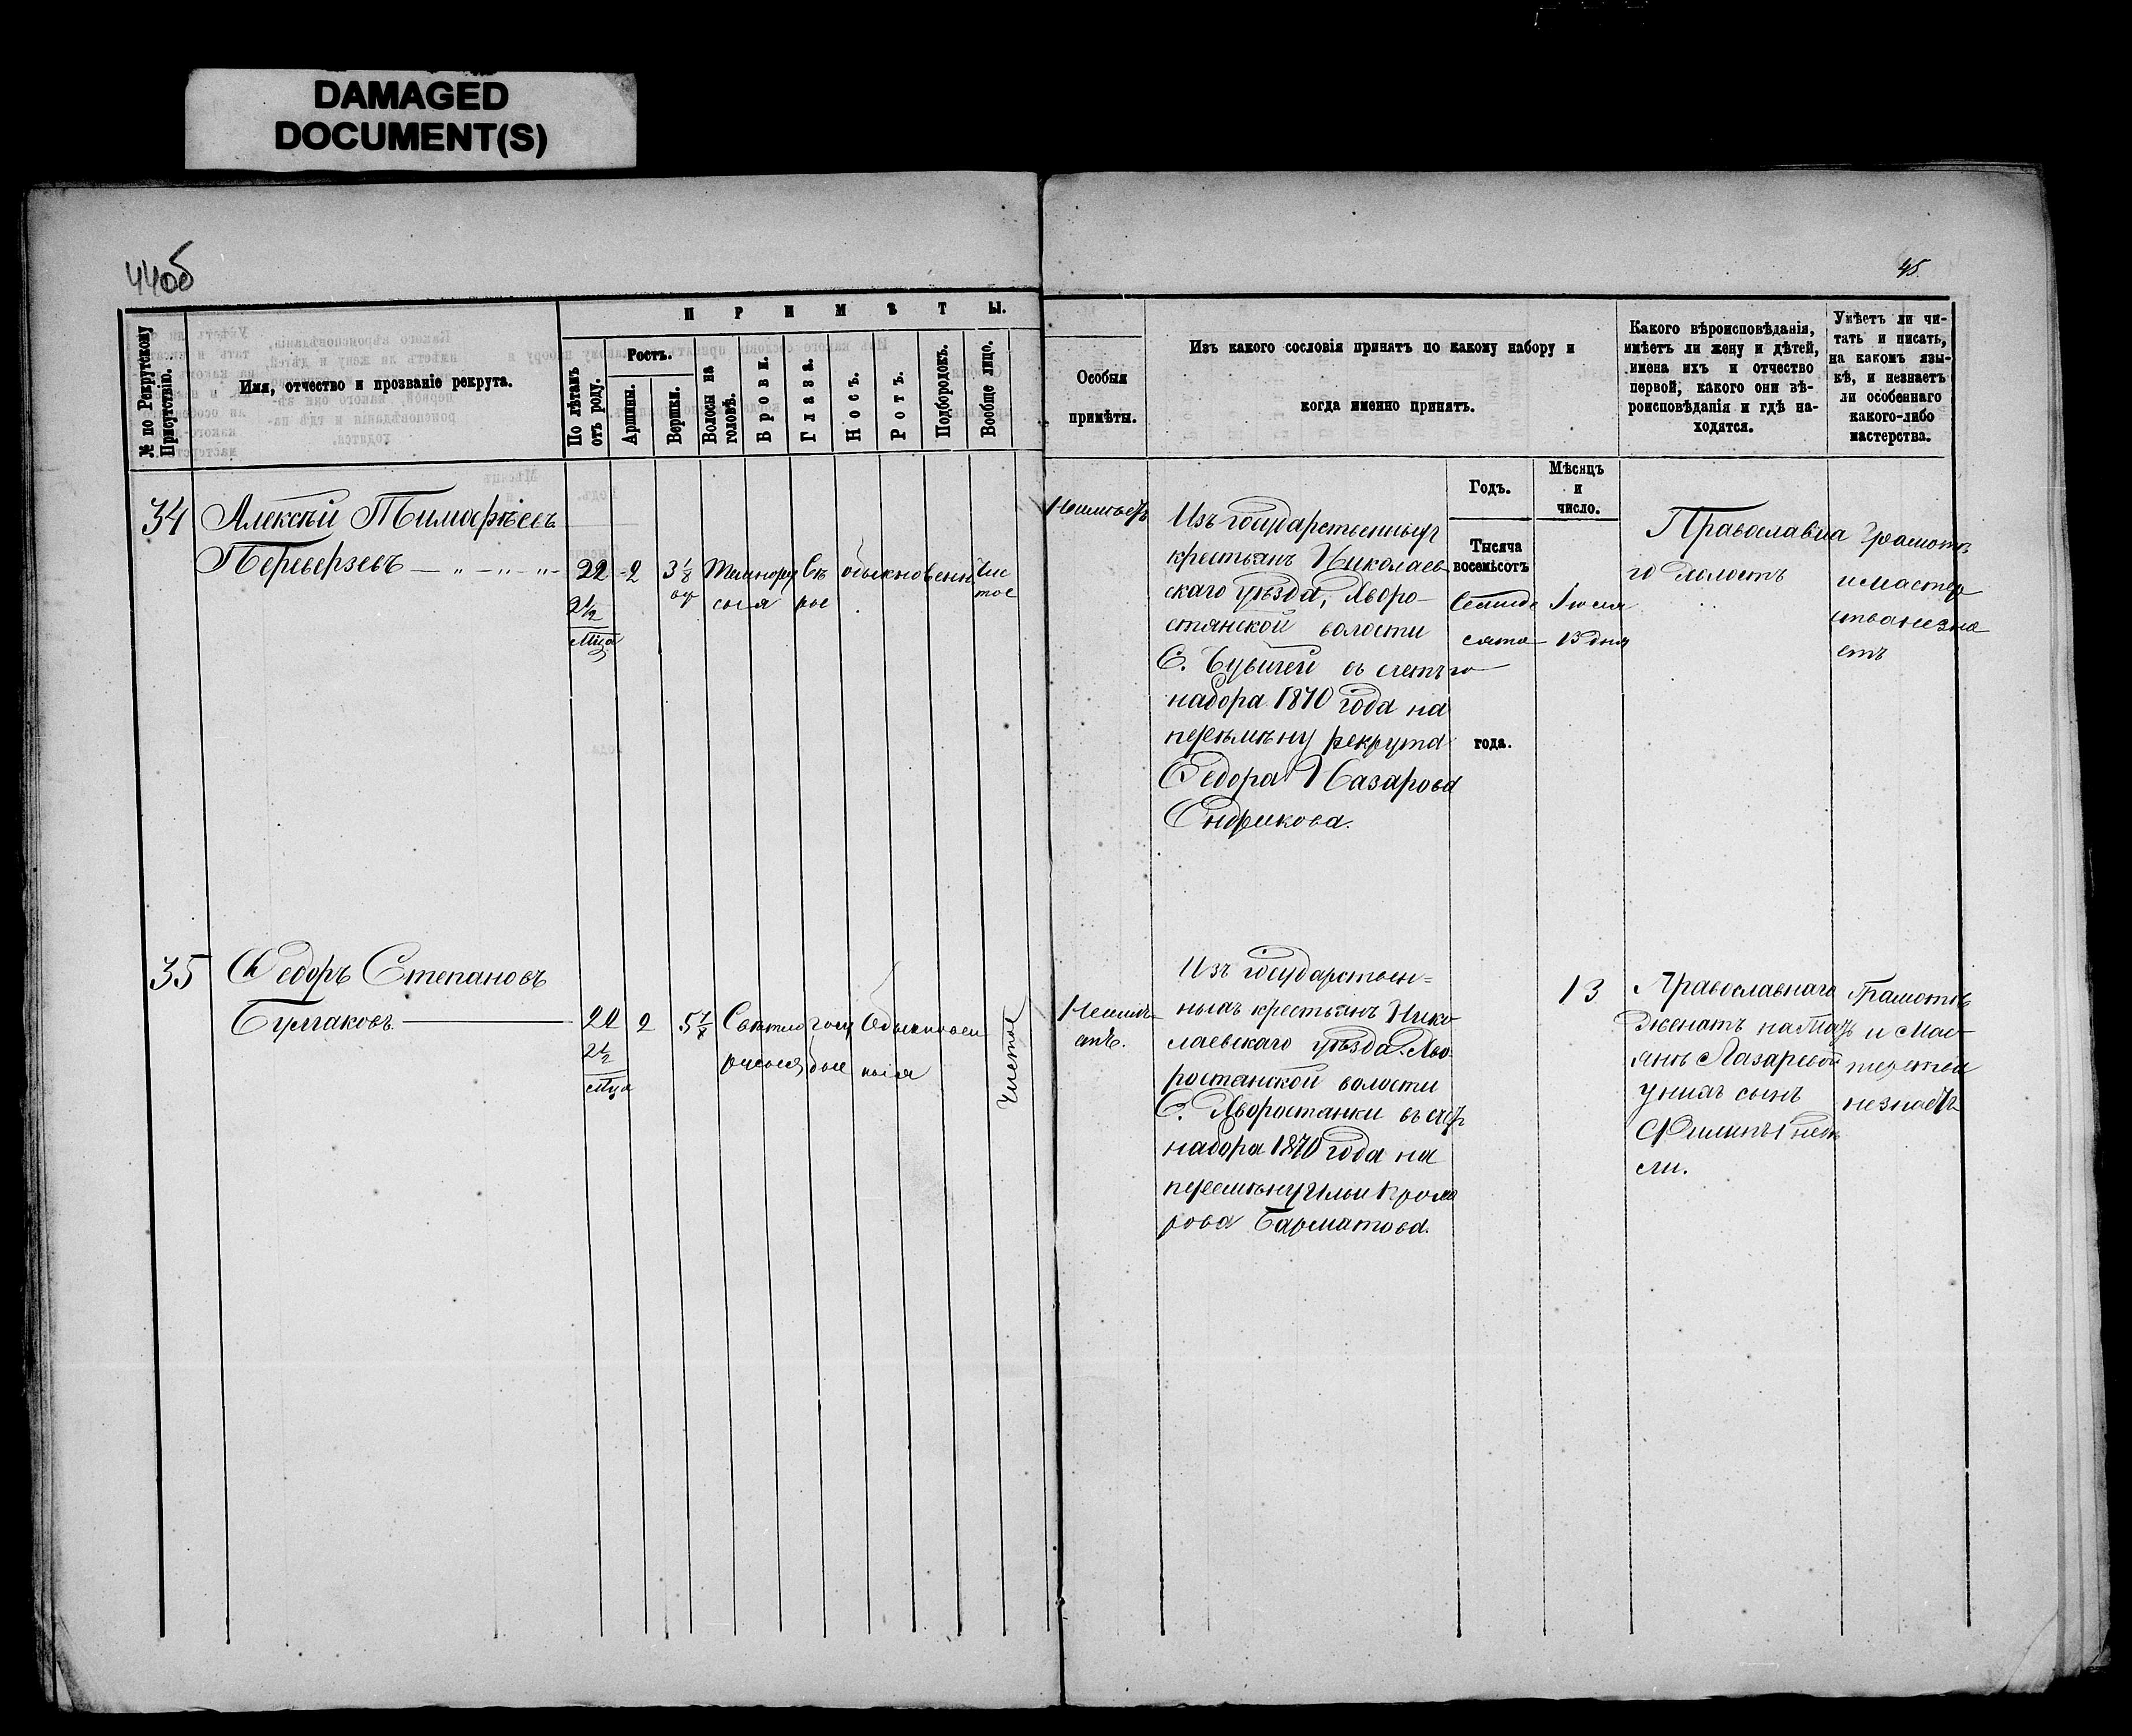 DAMAGED
DOCUMENT(S)
44об
45
№ по Рекрутскому
Присутствію.
Имя, отчество и прозваніе рекрута.
ПРИМѢТЫ.
По лѣтамъ
отъ роду.
Ростъ.
Аршины.
Вершки.
Волосы на
головѣ.
Брови.
Глаза.
Носъ.
Ротъ.
Подбородокъ.
Вообще лицо.
Особыя
примѣты.
Изъ какого сословія принятъ по какому набору и
когда именно принятъ.
Какого вѣроисповѣданія,
имѣетъ ли жену и дѣтей,
имена ихъ и отчество
первой, какого они вѣ-
роисповѣданія и гдѣ на-
ходятся.
Умѣетъ ли чи-
тать и писать,
на какомъ язы-
кѣ, и незнаетъ
ли особеннаго
какого-либо
мастерства.
Годъ.
Мѣсяцъ
и
число.
Тысяча
восемьсотъ
Семиде
сята
года.
34
Алексѣй Тимофѣевъ
Переверзевъ
22
2 1/2
мца
2
3 1/8
Темнору
сыя
Сѣ
рые
обыкновенн
Чис
тое
Неимѣетъ
Изъ государственныхъ
крестьянъ Николаев
скаго уѣзда, Хворо-
стянской волости
С. въ счетъ
набора 1870 года на
перемѣну рекрута
Федора Назарова
Іюня
13 дня
Православна
го холостъ
Грамотѣ
и мастер
ства незна
етъ
35
Федоръ Степановъ
Булгаковъ
22
2 1/2
мца
2
5 1/8
Свѣтло
русыя
голу
бые
Обыкновен
ныя
Чистое
Неимѣ-
етъ.
Изъ государствен-
ныхъ крестьянъ Нико
лаевскаго уѣзда Хво-
ростянской волости
С. Хворостянки въ счетъ
набора 1870 года на
перемѣну Ильи
Барматова.
13
Православнаго
женатъ на
Лазаревой
у нихъ сынъ
Филипъ 1 неде
ли.
Грамотѣ
и мас-
терства
незнаетъ